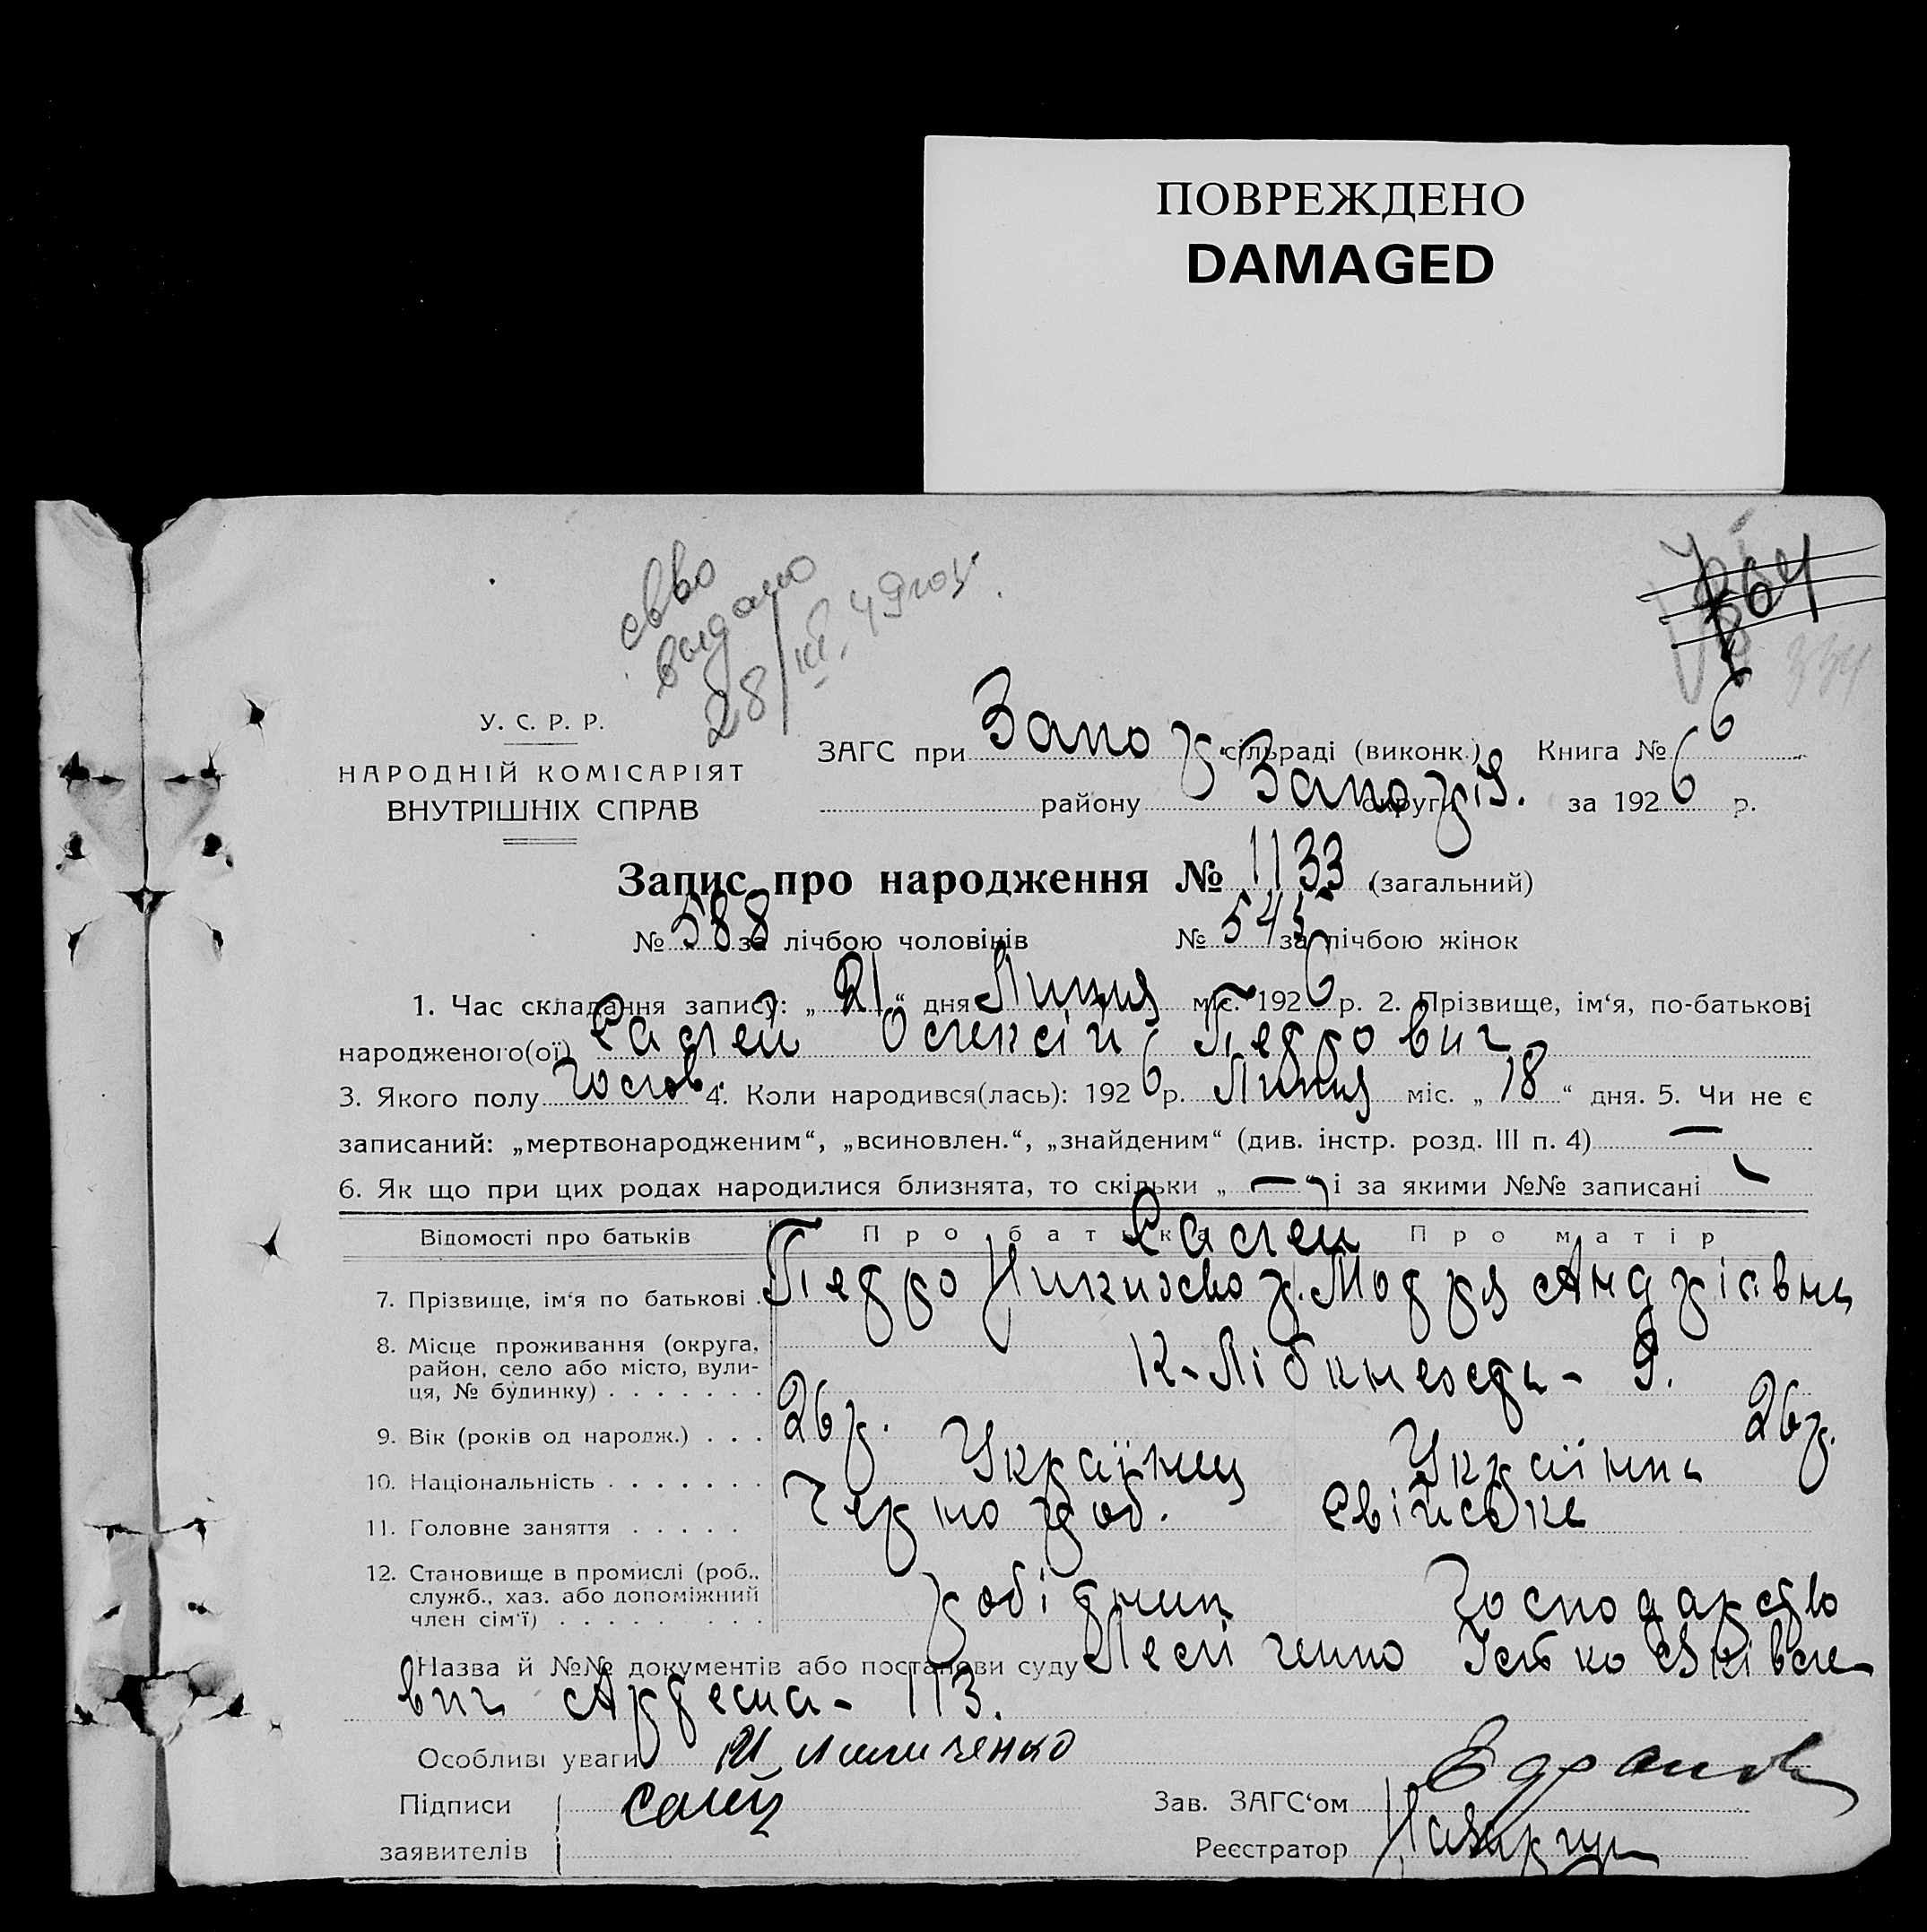 ПОВРЕЖДЕНО
DAMAGED
выдано
28/III.49 году.
334
У. С. Р. Р.
НАРОДНІЙ КОМІСАРІЯТ
ВНУТРІШНІХ СПРАВ
ЗАГС при Запор сільраді (виконк.) Книга № 6
району Запоріз. округи за 1926 р.
Запис про народження № 1133 (загальний)
№ 588 за лічбою чоловіків № 545 за лічбою жінок
1. Час складання запису: „21“ дня Липня міс. 1926 р. 2. Прізвище, ім‘я, по-батькові
народженого(ої) Салей Олексій Петрович
3. Якого полу Чолов. 4. Коли народився(лась): 1926 р. Липня міс. „18“ дня. 5. Чи не є
записаний: „мертвонародженим“, „всиновлен.“, „знайденим“ (див. інстр. розд. III п. 4) —
6. Як що при цих родах народилися близнята, то скільки „—“ і за якими №№ записані —
Відомості про батьків Про батька Салей Про матір
7. Прізвище, ім‘я по батькові . Петро Мотря Андріївна
8. Місце проживання (округа,
район, село або місто, вули-
ця, № будинку) . . . . . . . К-Лібкнехта- 9.
9. Вік (років од народж.) . . . 26 р. 26 р.
10. Національність . . . . . . . Українец Українка
11. Головне заняття . . . . . Чорно роб. Свійське
12. Становище в промислі (роб.,
служб., хаз. або допоміжний
член сім‘ї) . . . . . . . . . робітник Господарство
Назва й №№ документів або постанови суду
вич 113.
Особливі уваги
Підписи Салей Зав. ЗАГС‘ом
заявителів Реєстратор